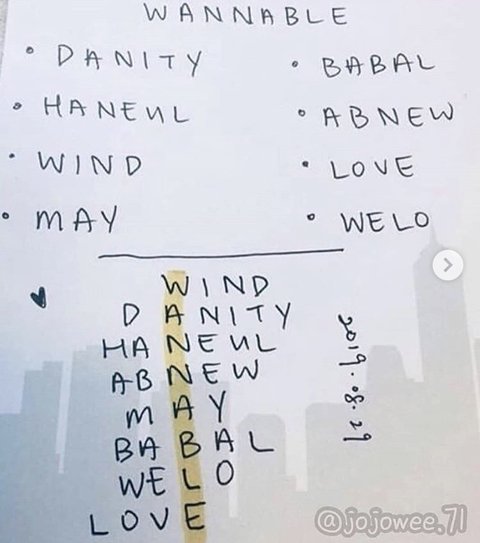 WANNABLE
• DANITY
• HANEUL
• WIND
• MAY
• BABAL
• ABNEW
• LOVE
• WELO
WIND
DANITY
HANEUL
ABNEW
MAY
BABAL
WELO
LOVE
2019.08.29
@jojowee.71